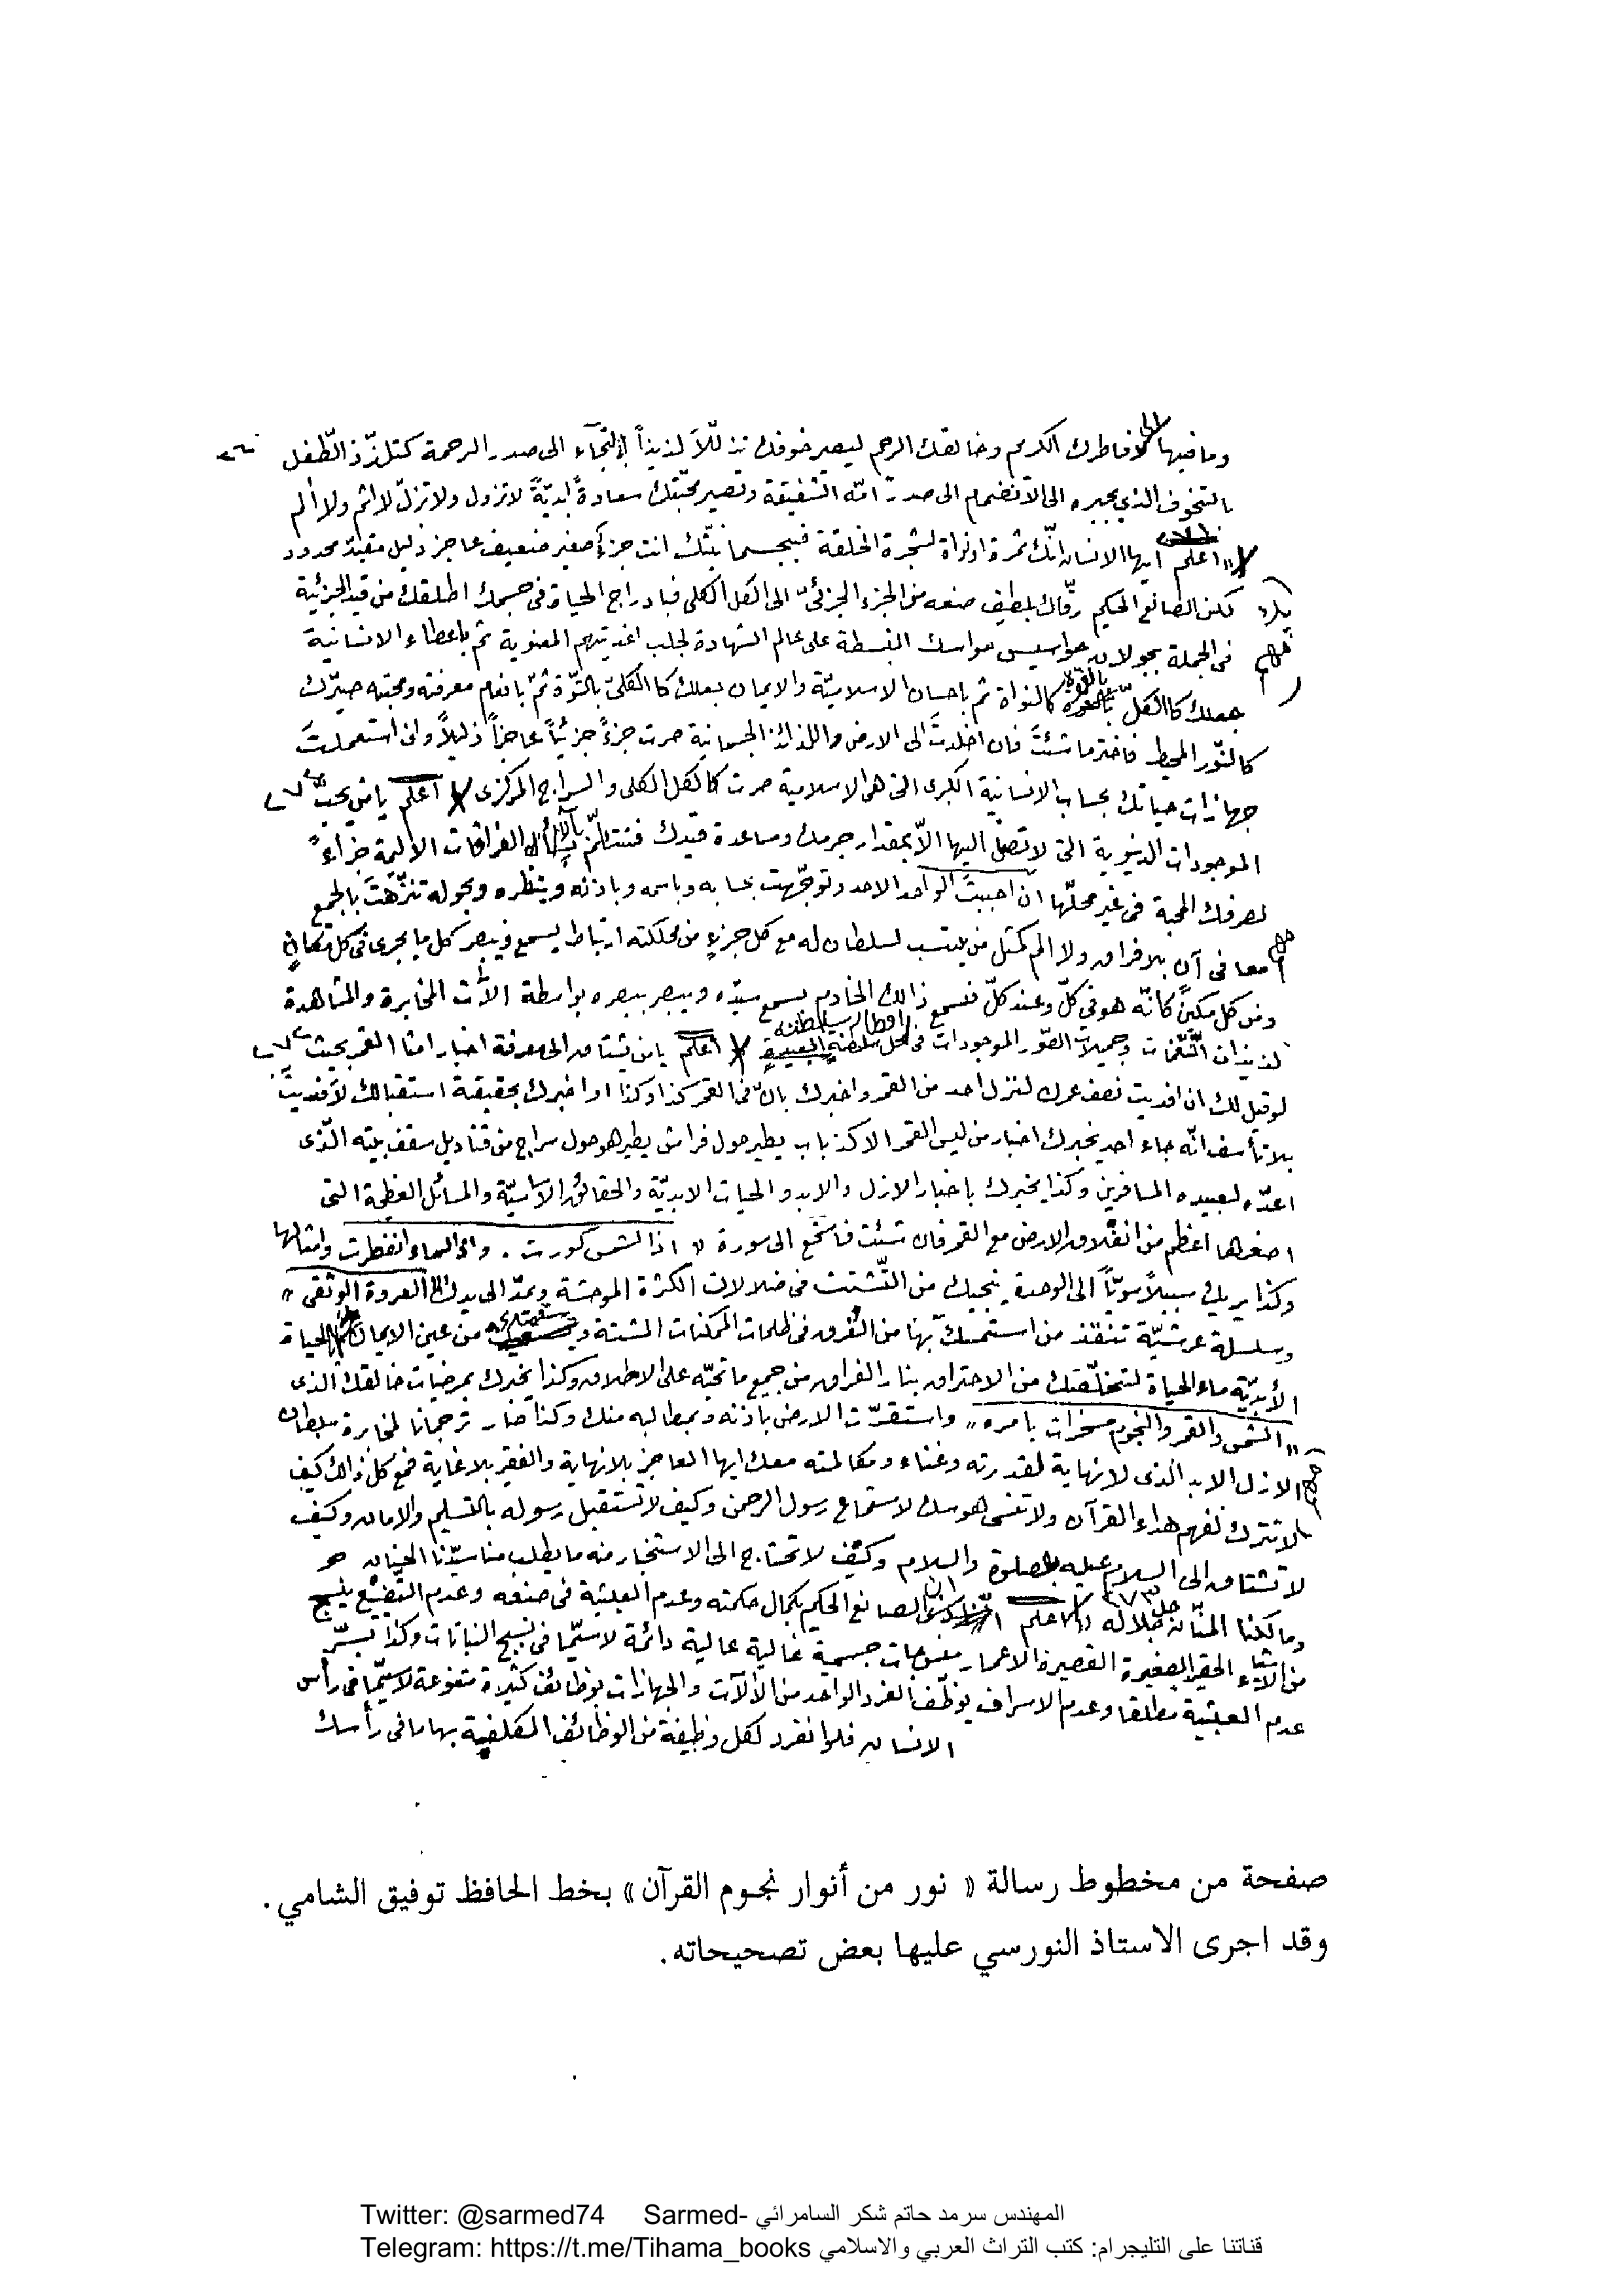 وما فيها الى فاطرك الكريم وخالقك الرحيم ليصير خوفك تذلّلاً لذيذاً إلتجاء الى صدر الرحمة كتلذّذ الطّفل
بالتخوف الذي يجبره الى الانضمام الى صدر امّه الشفيقة وتصير محبّتك سعادةً ابديّةً لا تزول ولا تزلّ لا اثم ولا ألم
اعلم ايها الانسان انّك ثمرة او نواة لشجرة الخلقة فبجسمانيّتك انت جزء صغير ضعيف عاجز ذليل مقيّد محدود
لكن الصانع الحكيم رقّاك بلطيف صنعه من الجزء الجزئىّ الى الكل الكلى فبادراج الحياة فى جسمك اطلقك من قيد الجزئية
فى الجملة بجولان جواسيس حواسك المنبسطة على عالم الشهادة لجلب اغذيتهم المعنوية ثم باعطاء الانسانية
جعلك كالكلّ بالقوة كالنواة ثم باحسان الاسلاميّة والايمان جعلك كالكلىّ بالقوّة ثمّ بانعام معرفته ومحبته صيّرك
كالنّور المحيط فاختر ما شئتَ فان اخلدتَ الى الارض واللذائذ الجسمانية صرت جزءً جزئياً عاجزاً ذليلاً وان استعملتَ
جهازات حياتك بحساب الانسانية الكبرى التى هى الاسلامية صرت كالكل الكلى والسراج المركزى اعلم يا من يحبّ
الموجودات الدنيوية التى لا تصل اليها الاّ بمقدار جرمك ومساعدة قيدك فتتألّم بآلام الفراقات الأليمة جزاءً
لصرفك المحبة فى غير محلّها ان احببتَ الواحد الاحد وتوجّهت بحسابه وباسمه وباذنه وبنظره وبحوله تنزّهتَ بالجميع
معا فى آن بلا فراق ولا الم كمثل من ينتسب لسلطان له مع كل جزءٍ من مملكته ارتباط يسمع ويبصر كل ما يجرى فى كل مكانٍ
ومن كل مكين كانّه هو فى كلّ وعند كلّ فسمع ذالك الخادم بسمع سيّده ويبصر ببصره بواسطة الآت المخابرة والمشاهدة
لذيذات النّغمات وجميلات الصّور الموجودات فى اقطار سلطنته البعيدة اعلم يا من يشتاق الى معرفة اخبار امثا القمر بحيث
لو قيل لك ان افديت نصف عمرك لنزل احد من القمر واخبرك بانّ فى القمر كذا وكذا او اخبرك بحقيقة استقبالك لأفديتَ
بلا تأسف انّه جاء احد يخبرك اخبار من ليس القمر الا كذباب يطير حول فراش يطير هو حول سراج من قناديل سقف بيته الّذى
اعدّه لعبيده المسافرين وكذا يخبرك باخبار الازل والابد والحيات الابديّة والحقائق الاساسيّة والمسائل العظيمة التى
اصغرها اعظم من انفلاق الارض مع القمر فان شئت فاستمع الى سورة « اذا الشمس كورت . واذا السماء انفطرت وامثالها
وكذا يريك سبيلاً سويّاً الى الوحدة ينجيك من التّشتت فى ضلالات الكثرة الموحشة ويمدّ الى يدك العروة الوثقى »
وسلسلة عرشيّة تنقذ من استمسك بها من الغرق فى ظلمات الممكنات المشتتة ويسقيك من عين الايمان الحياة
الأبديّة ماء الحياة لتخلّصك من الاحتراق بنار الفراق من جميع ما تحبّه على الاطلاق وكذا يخبرك بمرضيات خالقك الذى
« الشمس والقمر والنجوم مسخرات بامره » واستقرّت الارض باذنه وبمطالبه منك وكذا صار ترجمانا لمخابرة سلطان
الازل الابد الذى لا نهاية لقدرته وغناء ومكالمته معك ايها العاجز بلا نهاية والفقير بلا غاية فمع كل ذالك كيف
لا تترك لفهم هداء القرآن ولا تنسى هوسك لاستماع رسول الرحمن وكيف لا تستقبل رسوله بالتسليم والامان وكيف
لا تشتاق الى السلام عليه بصلوة والسلام وكيف لا تحتاج الى الاستخبار منه ما يطلب منا سيّدنا الحنان
ومالكنا المنّان جل جلاله اعلم ان الصانع الحكيم بكمال حكمته وعدم العبثية فى صنعه وعدم التّضييع ينسج
من الاشياء الحقيرة الصغيرة القصيرة الاعمار منسوجات جسيمة غالية عالية دائمة لا سيّما فى نسج النباتات وكذا
عدم العبثية مطلقا وعدم الاسراف يوظّف الفرد الواحد من الآلات والجهازات بوظائف كثيرة متنوعة لا سيّما فى رأس
الانسان فلو انفرد لكل وظيفة من الوظائف المكلفية بها ما فى رأسك
صفحة من مخطوط رسالة « نور من أنوار نجوم القرآن » بخط الحافظ توفيق الشامي .
وقد اجرى الاستاذ النورسي عليها بعض تصحيحاته.
Twitter: @sarmed74 Sarmed- المهندس سرمد حاتم شكر السامرائي
Telegram: https://t.me/Tihama_books قناتنا على التليجرام: كتب التراث العربي والاسلامي